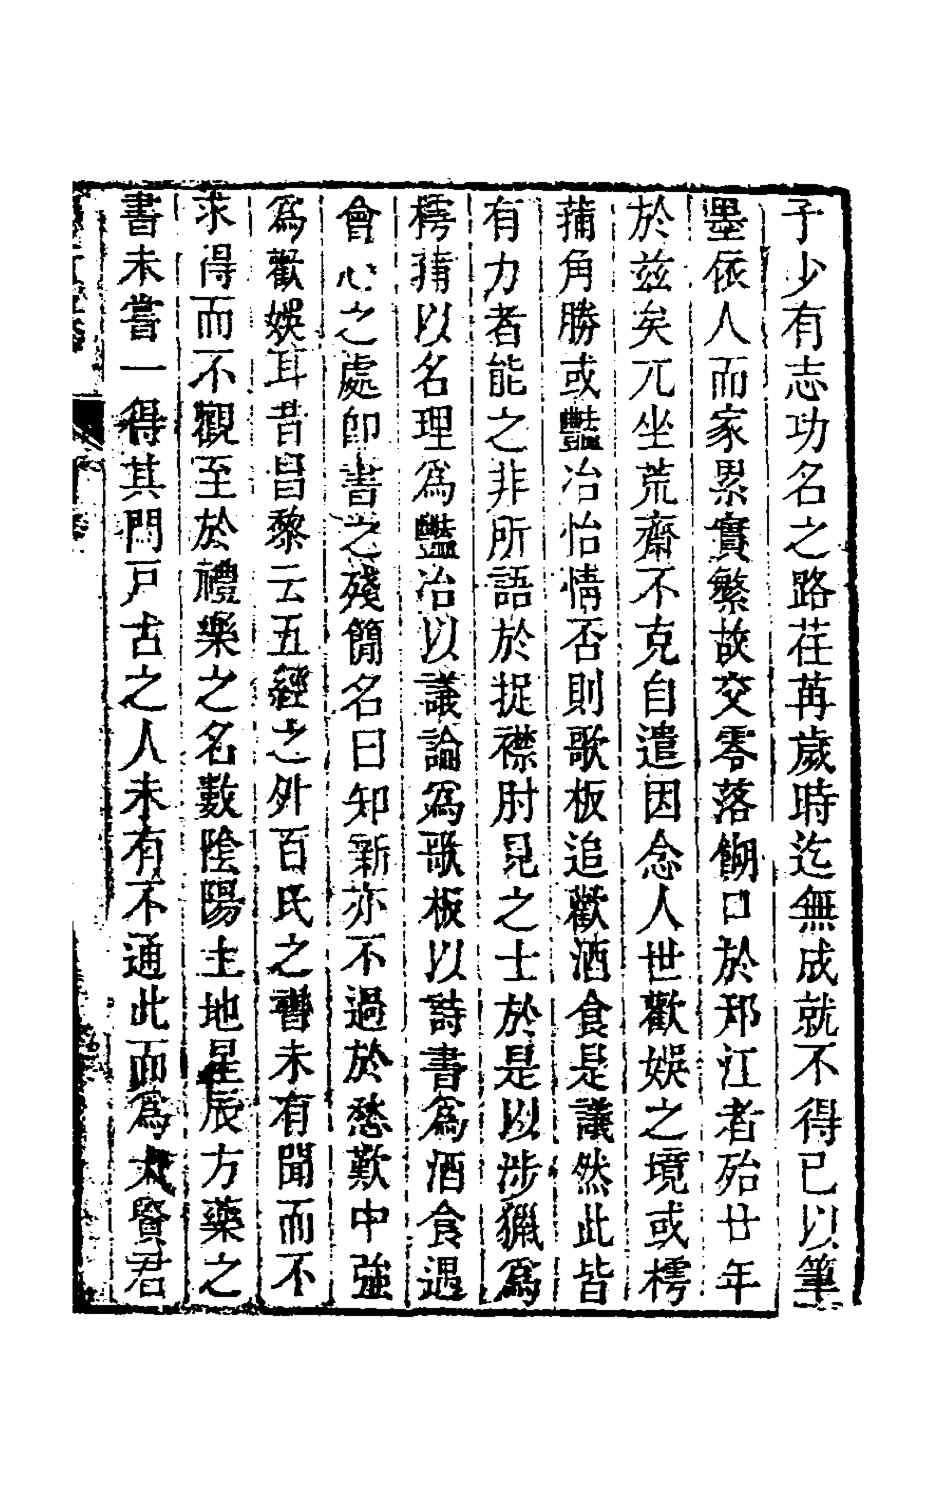 子少有志功名之路荏苒歲時迄無成就不得已以筆
墨依人而家累實繁故交零落餬口於邗江者殆廿年
於兹矣兀坐荒齋不克自遣因念人世歡娛之境或樗
蒱角勝或豔冶怡情否則歌板追歡酒食是議然此皆
有力者能之非所語於捉襟肘見之士於是以涉獵爲
樗蒱以名理爲豔冶以議論爲歌板以詩書爲酒食遇
會心之處卽書之殘簡名曰知新亦不過於愁歎中強
爲歡娛耳昔昌黎云五經之外百氏之書未有聞而不
求得而不觀至於禮樂之名數陰陽土地星辰方藥之
書未嘗一得其門戸古之人未有不通此而爲大賢君